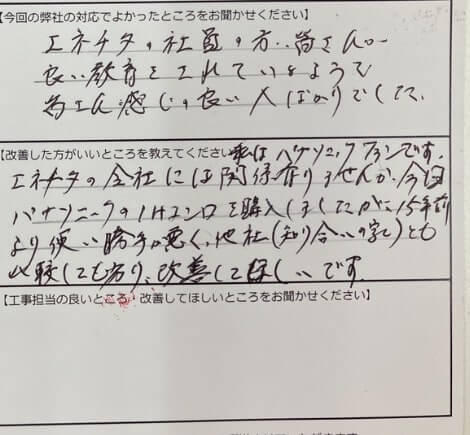 【今回の弊社の対応でよかったところをお聞かせください】
エネチタの社員の方、皆さんが
良い教育をされているようで
皆さん感じの良い人ばかりでした。
【改善した方がいいところを教えてください 私はパナソニックファンです。
エネチタの会社には関係有りませんが、今回
パナソニックのIHコンロを購入しましたが、15年前
より使い勝手が悪く、他社(知り合いの家)とも
比較しても劣り、改善して ほしいです。
【工事担当の良いところ・改善してほしいところをお聞かせください】